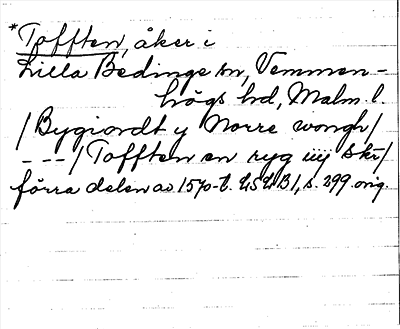 *Tofften, åker i
Lilla Bedinge sn, Vemmen-
högs hd, Malm. l.
/Bygiordt y Norre wongh/
---/Tofften en ryg iiij skr/
förra delen av 1570-t. LSLB 1, s. 299 orig.